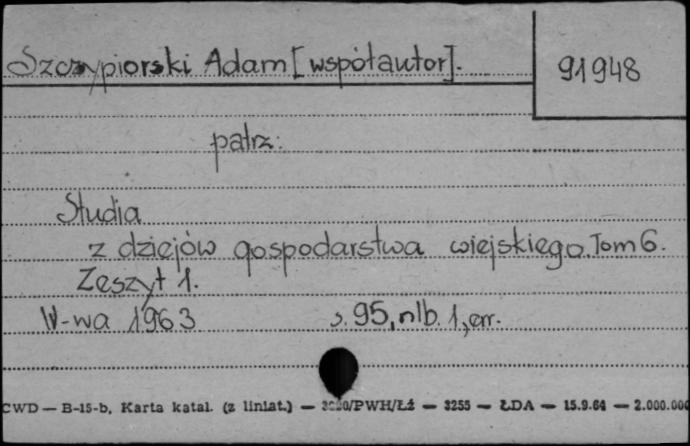 Szczypiorski Adam [współautor].
91948
patrz:
Studia
z dziejów gospodarstwa wiejskiego. Tom 6.
Zeszyt 1.
W-wa 1963 s. 95, nlb. 1, err.
CWD — B-15-b, Karta katal. (z liniat.) — /PWH/Łź — 3255 — ŁDA — 15.9.64 — 2.000.000